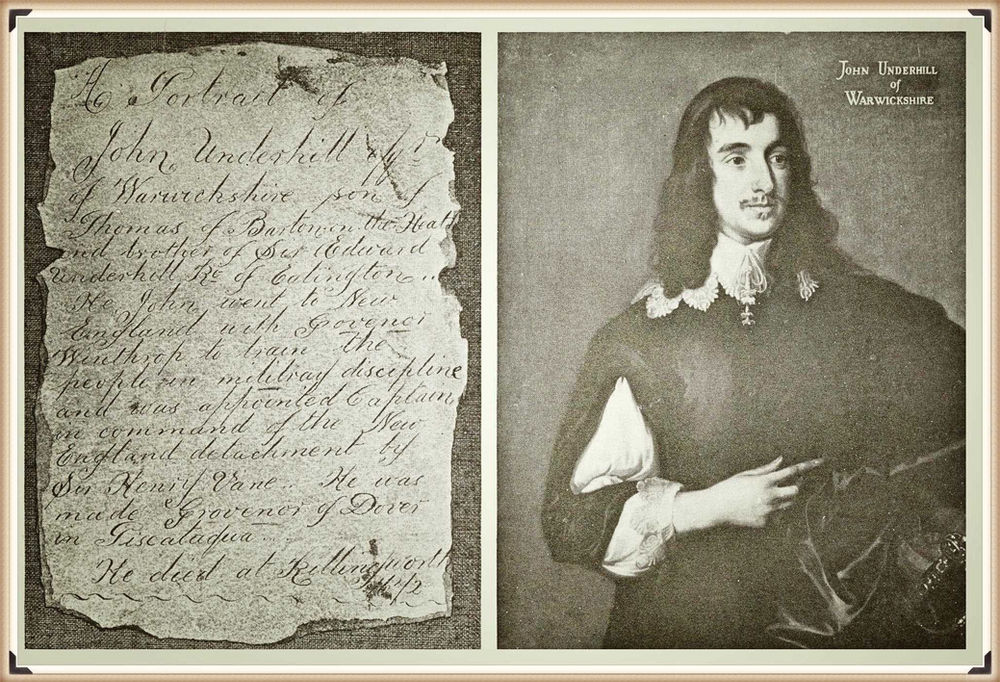 A Portrait of
John Underhill
of Warwickshire son of
Thomas of Barton on the Heath
and brother of Sir Edward
Underhill Kt. of Eatington ..
He John went to New
England with Grovenor
Winthrop to train the
people in militray discipline
and was appointed Captain
in command of the New
England detachment by
Sir Henry Vane .. He was
made Grovenor of Dover
in Piscataqua
He died at Killingworth
JOHN UNDERHILL
of
WARWICKSHIRE